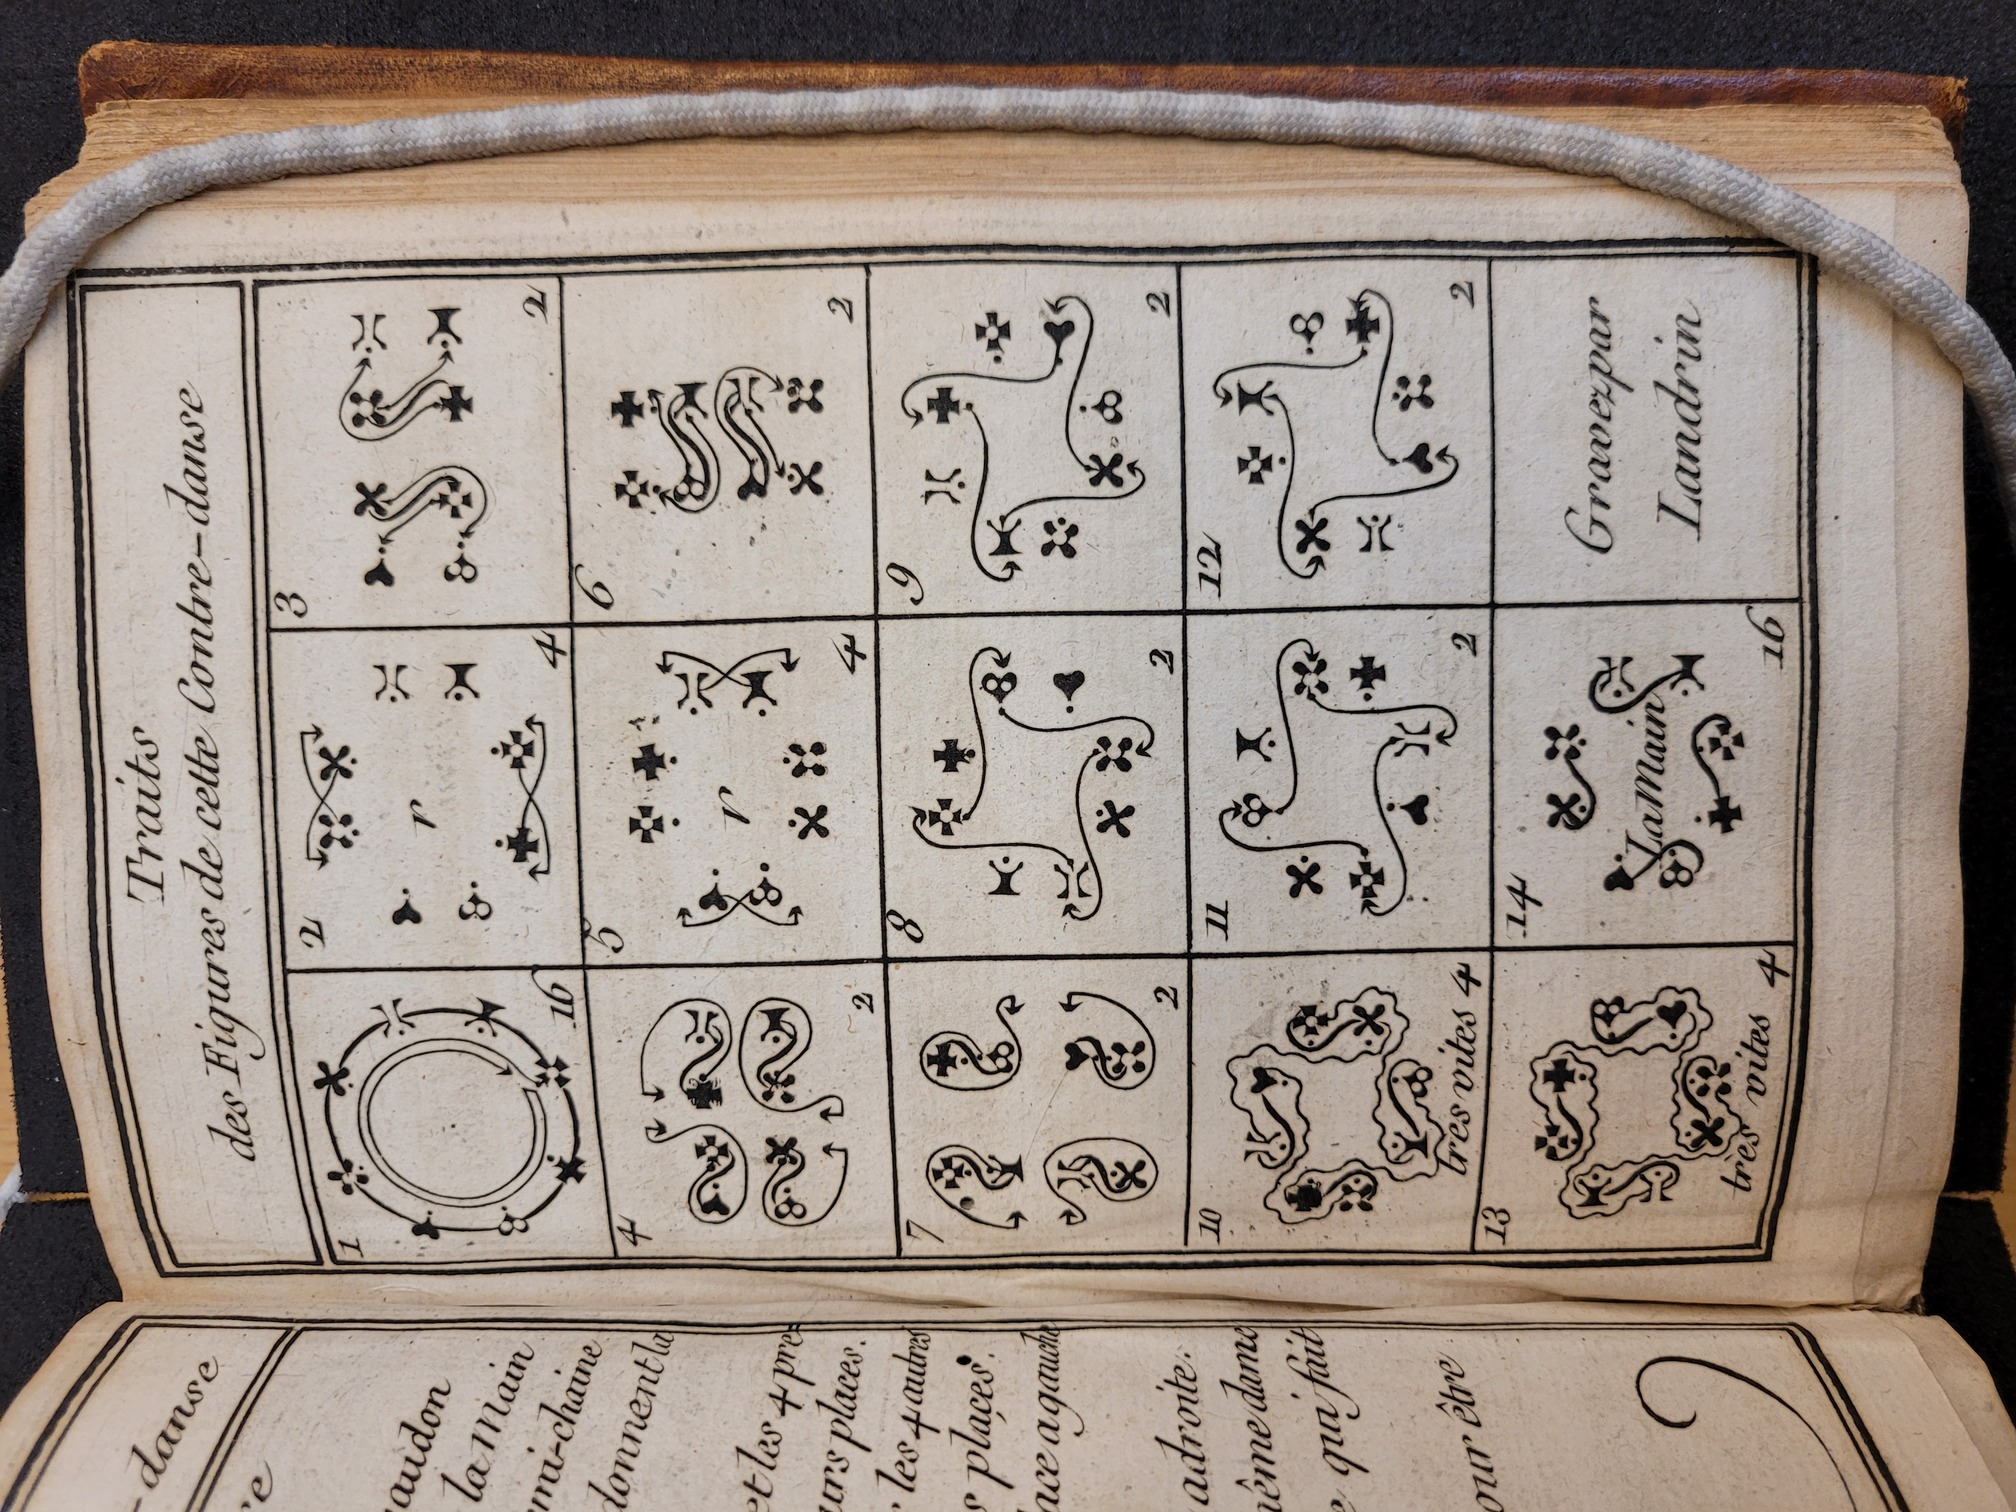 Traits
des Figures de cette Contre-danse
1
16
2
r
4
3
2
4
2
5
r
4
6
2
7
2
8
2
9
2
10
tres vites 4
11
2
12
2
13
très vites 4
14
La Main
16
Gravez par
Landrin
-danse
la Main
donnent la
et les 4 pre=
places.
les 4 autres
places.
a gauche
a droite.
même dame
qui fait
être